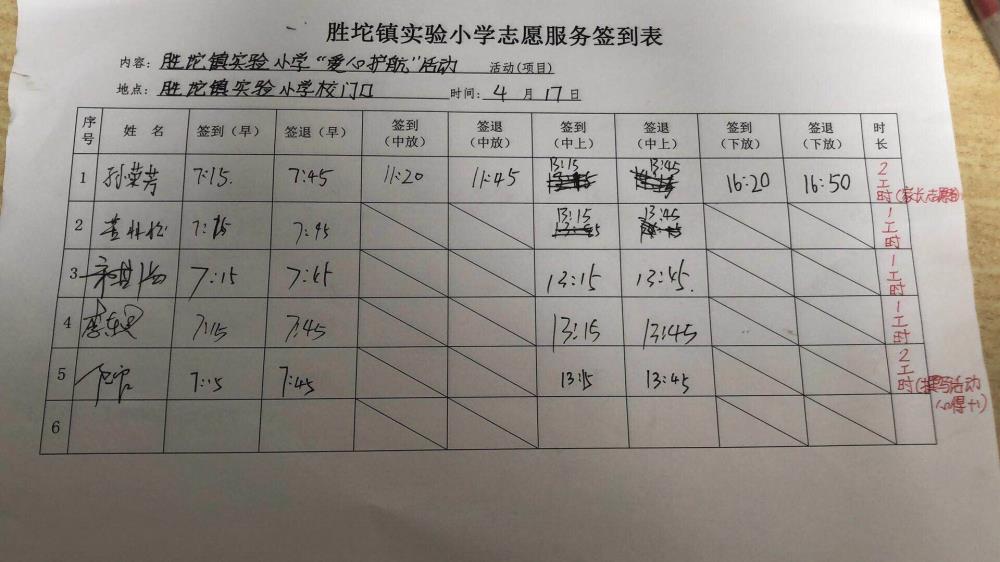 胜坨镇实验小学志愿服务签到表
内容：胜坨镇实验小学“爱心护航”活动 活动(项目)
地点：胜坨镇实验小学校门口 时间：4月17日
序号 姓名 签到（早） 签退（早） 签到（中放） 签退（中放） 签到（中上） 签退（中上） 签到（下放） 签退（下放） 时长
1 7:15 7:45 11:20 11:45 13:15 13:45 16:20 16:50 2工时(家长志愿者)
2 7:15 7:45 13:15 13:45 1工时
3 7:15 7:45 13:15 13:45 1工时
4 7:15 7:45 13:15 13:45 1工时
5 7:15 7:45 13:15 13:45 2工时(撰写活动心得+1)
6